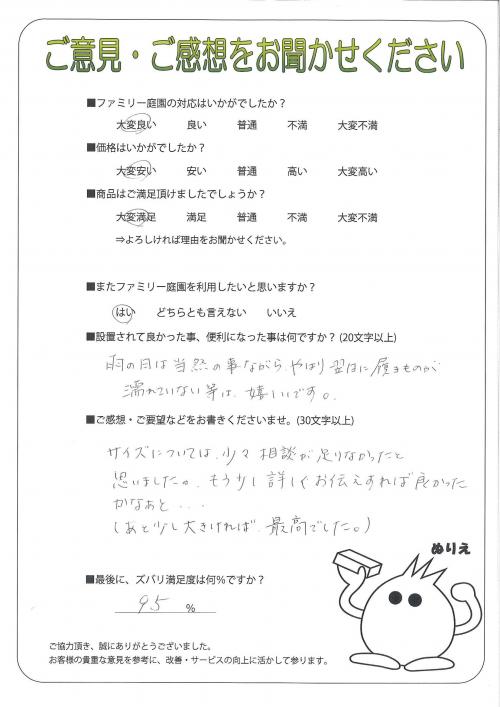 ご意見・ご感想をお聞かせください
■ファミリー庭園の対応はいかがでしたか？
大変良い 良い 普通 不満 大変不満
■価格はいかがでしたか？
大変安い 安い 普通 高い 大変高い
■商品はご満足頂けましたでしょうか？
大変満足 満足 普通 不満 大変不満
⇒よろしければ理由をお聞かせください。
■またファミリー庭園を利用したいと思いますか？
はい どちらとも言えない いいえ
■設置されて良かった事、便利になった事は何ですか？(20文字以上)
雨の日は当然の事ながら、やはり翌日に履きものが
濡れていない等は、嬉しいです。
■ご感想・ご要望などをお書きくださいませ。(30文字以上)
サイズについては、少々相談が足りなかったと
思いました。もう少し詳しくお伝えすれば良かった
かなぁと・・・
(あと少し大きければ、最高でした。)
ぬりえ
■最後に、ズバリ満足度は何％ですか？
95 %
ご協力頂き、誠にありがとうございました。
お客様の貴重な意見を参考に、改善・サービスの向上に活かして参ります。